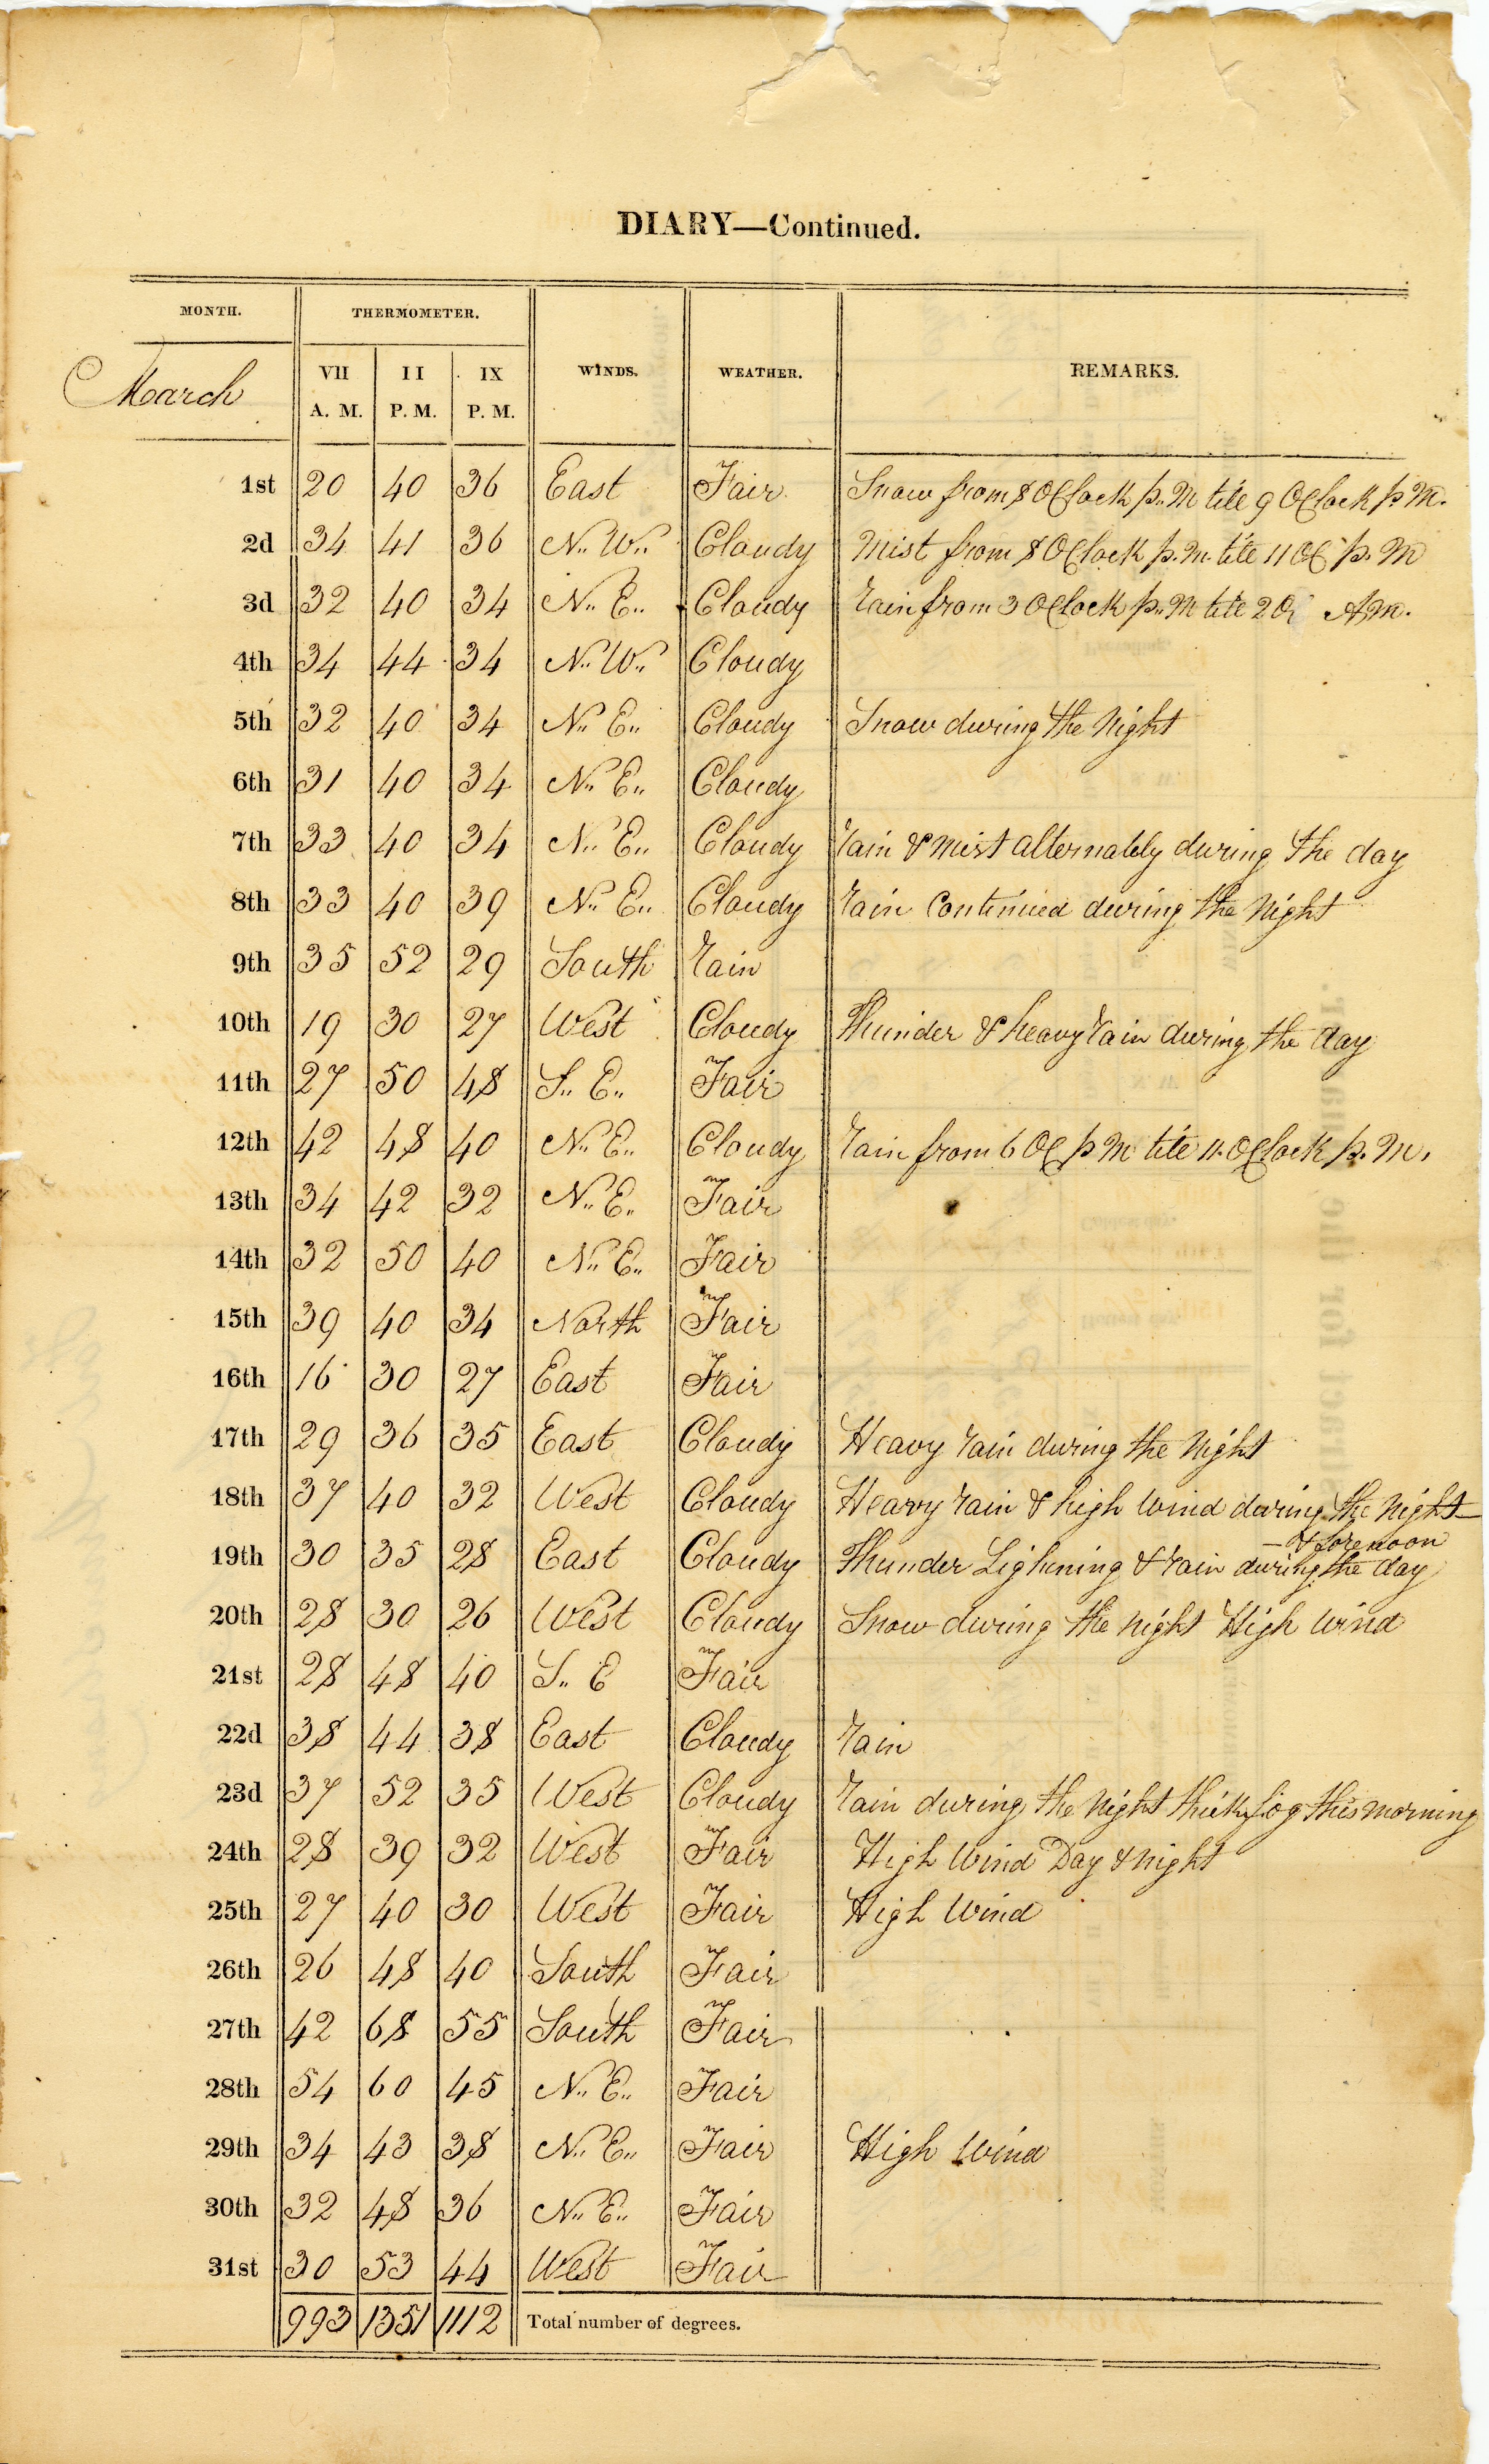 DIARY—Continued.
MONTH. THERMOMETER. WINDS. WEATHER. REMARKS.
March VII A. M. II P. M. IX P. M.
1st 20 40 36 East Fair Snow from 8 OClock p. M till 9 OClock p M.
2d 34 41 36 N. W. Cloudy Mist from 8 OClock p. M. till 11 OC p. M
3d 32 40 34 N. E. Cloudy rain from 3 OClock p. M till 2 O AM.
4th 34 44 34 N. W. Cloudy
5th 32 40 34 N. E. Cloudy Snow during the Night
6th 31 40 34 N. E. Cloudy
7th 33 40 34 N. E. Cloudy rain & mist alternately during the day
8th 33 40 39 N. E. Cloudy rain Continued during the Night
9th 35 52 29 South rain
10th 19 30 27 West Cloudy Thunder & heavy rain during the day
11th 27 50 48 S. E. Fair
12th 42 48 40 N. E. Cloudy rain from 6 OC p M till 11 OClock p. M.
13th 34 42 32 N. E. Fair
14th 32 50 40 N. E. Fair
15th 39 40 34 North Fair
16th 16 30 27 East Fair
17th 29 36 35 East Cloudy Heavy rain during the Night
18th 37 40 32 West Cloudy Heavy rain & high Wind during the Night—
—& forenoon
19th 30 35 28 East Cloudy Thunder Lighining & rain during the day
20th 28 30 26 West Cloudy Snow during the Night High Wind
21st 28 48 40 S. E Fair
22d 38 44 38 East Cloudy rain
23d 37 52 35 West Cloudy rain during the Night thick fog this morning
24th 28 39 32 West Fair High Wind Day & night
25th 27 40 30 West Fair High Wind
26th 26 48 40 South Fair
27th 42 68 55 South Fair
28th 54 60 45 N. E. Fair
29th 34 43 38 N. E. Fair High Wind
30th 32 48 36 N. E. Fair
31st 30 53 44 West Fair
993 1351 1112 Total number of degrees.